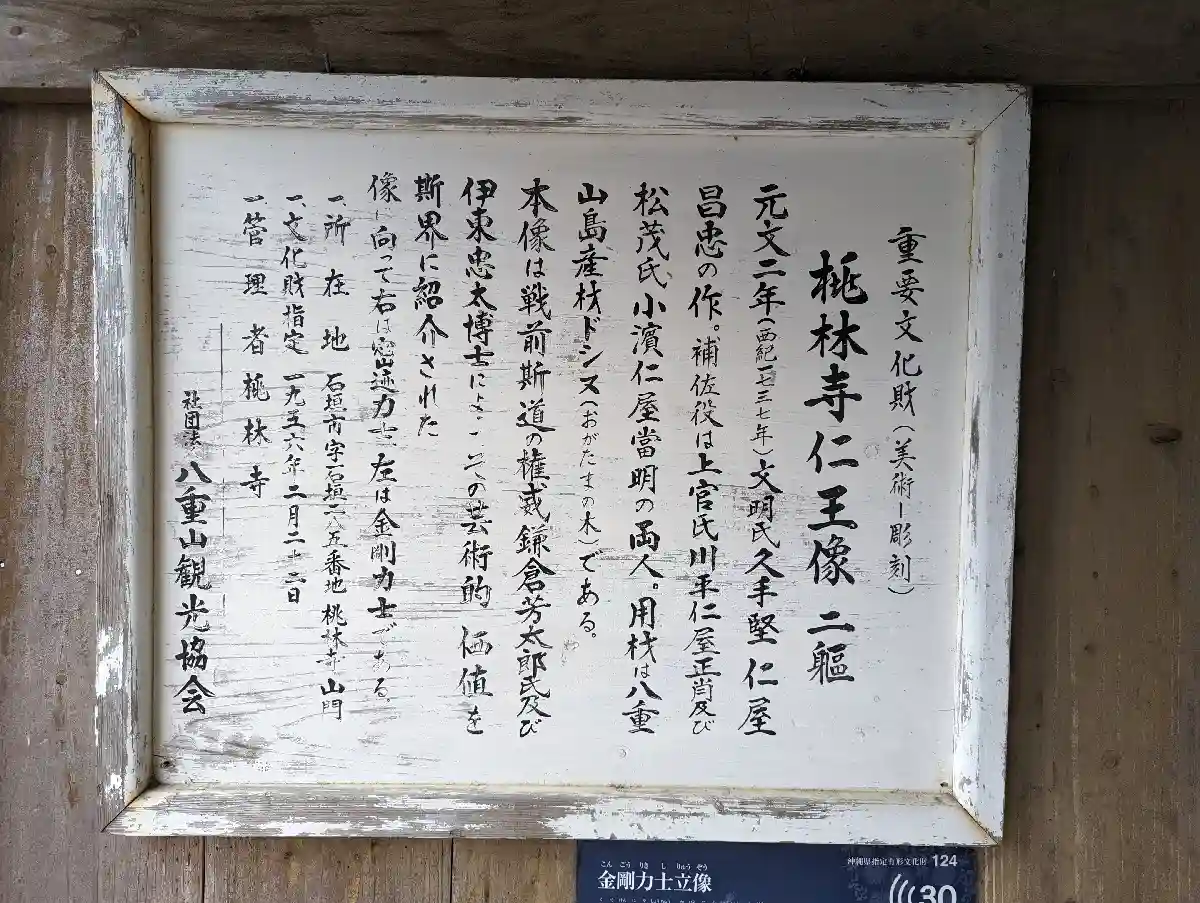 重要文化財(美術ー彫刻)
桃林寺仁王像 二軀
元文二年(西紀一七三七年)文明氏久手堅仁屋
昌忠の作。補佐役は上官氏川平仁屋正肖及び
松茂氏小濱仁屋當明の両人。用材は八重
山島産材ドシヌ(おがたまの木)である。
本像は戦前斯道の権威鎌倉芳太郎氏及び
伊東忠太博士によってその芸術的価値を
斯界に紹介された
像に向って右は密迹力士左は金剛力士である。
一、所在地 石垣市字石垣二八五番地桃林寺山門
一、文化財指定 一九五六年二月二十二日
一、管理者 桃林寺
社団法 八重山観光協会
こんごうりきしりゅうぞう
金剛力士立像
沖縄県指定有形文化財 124
30